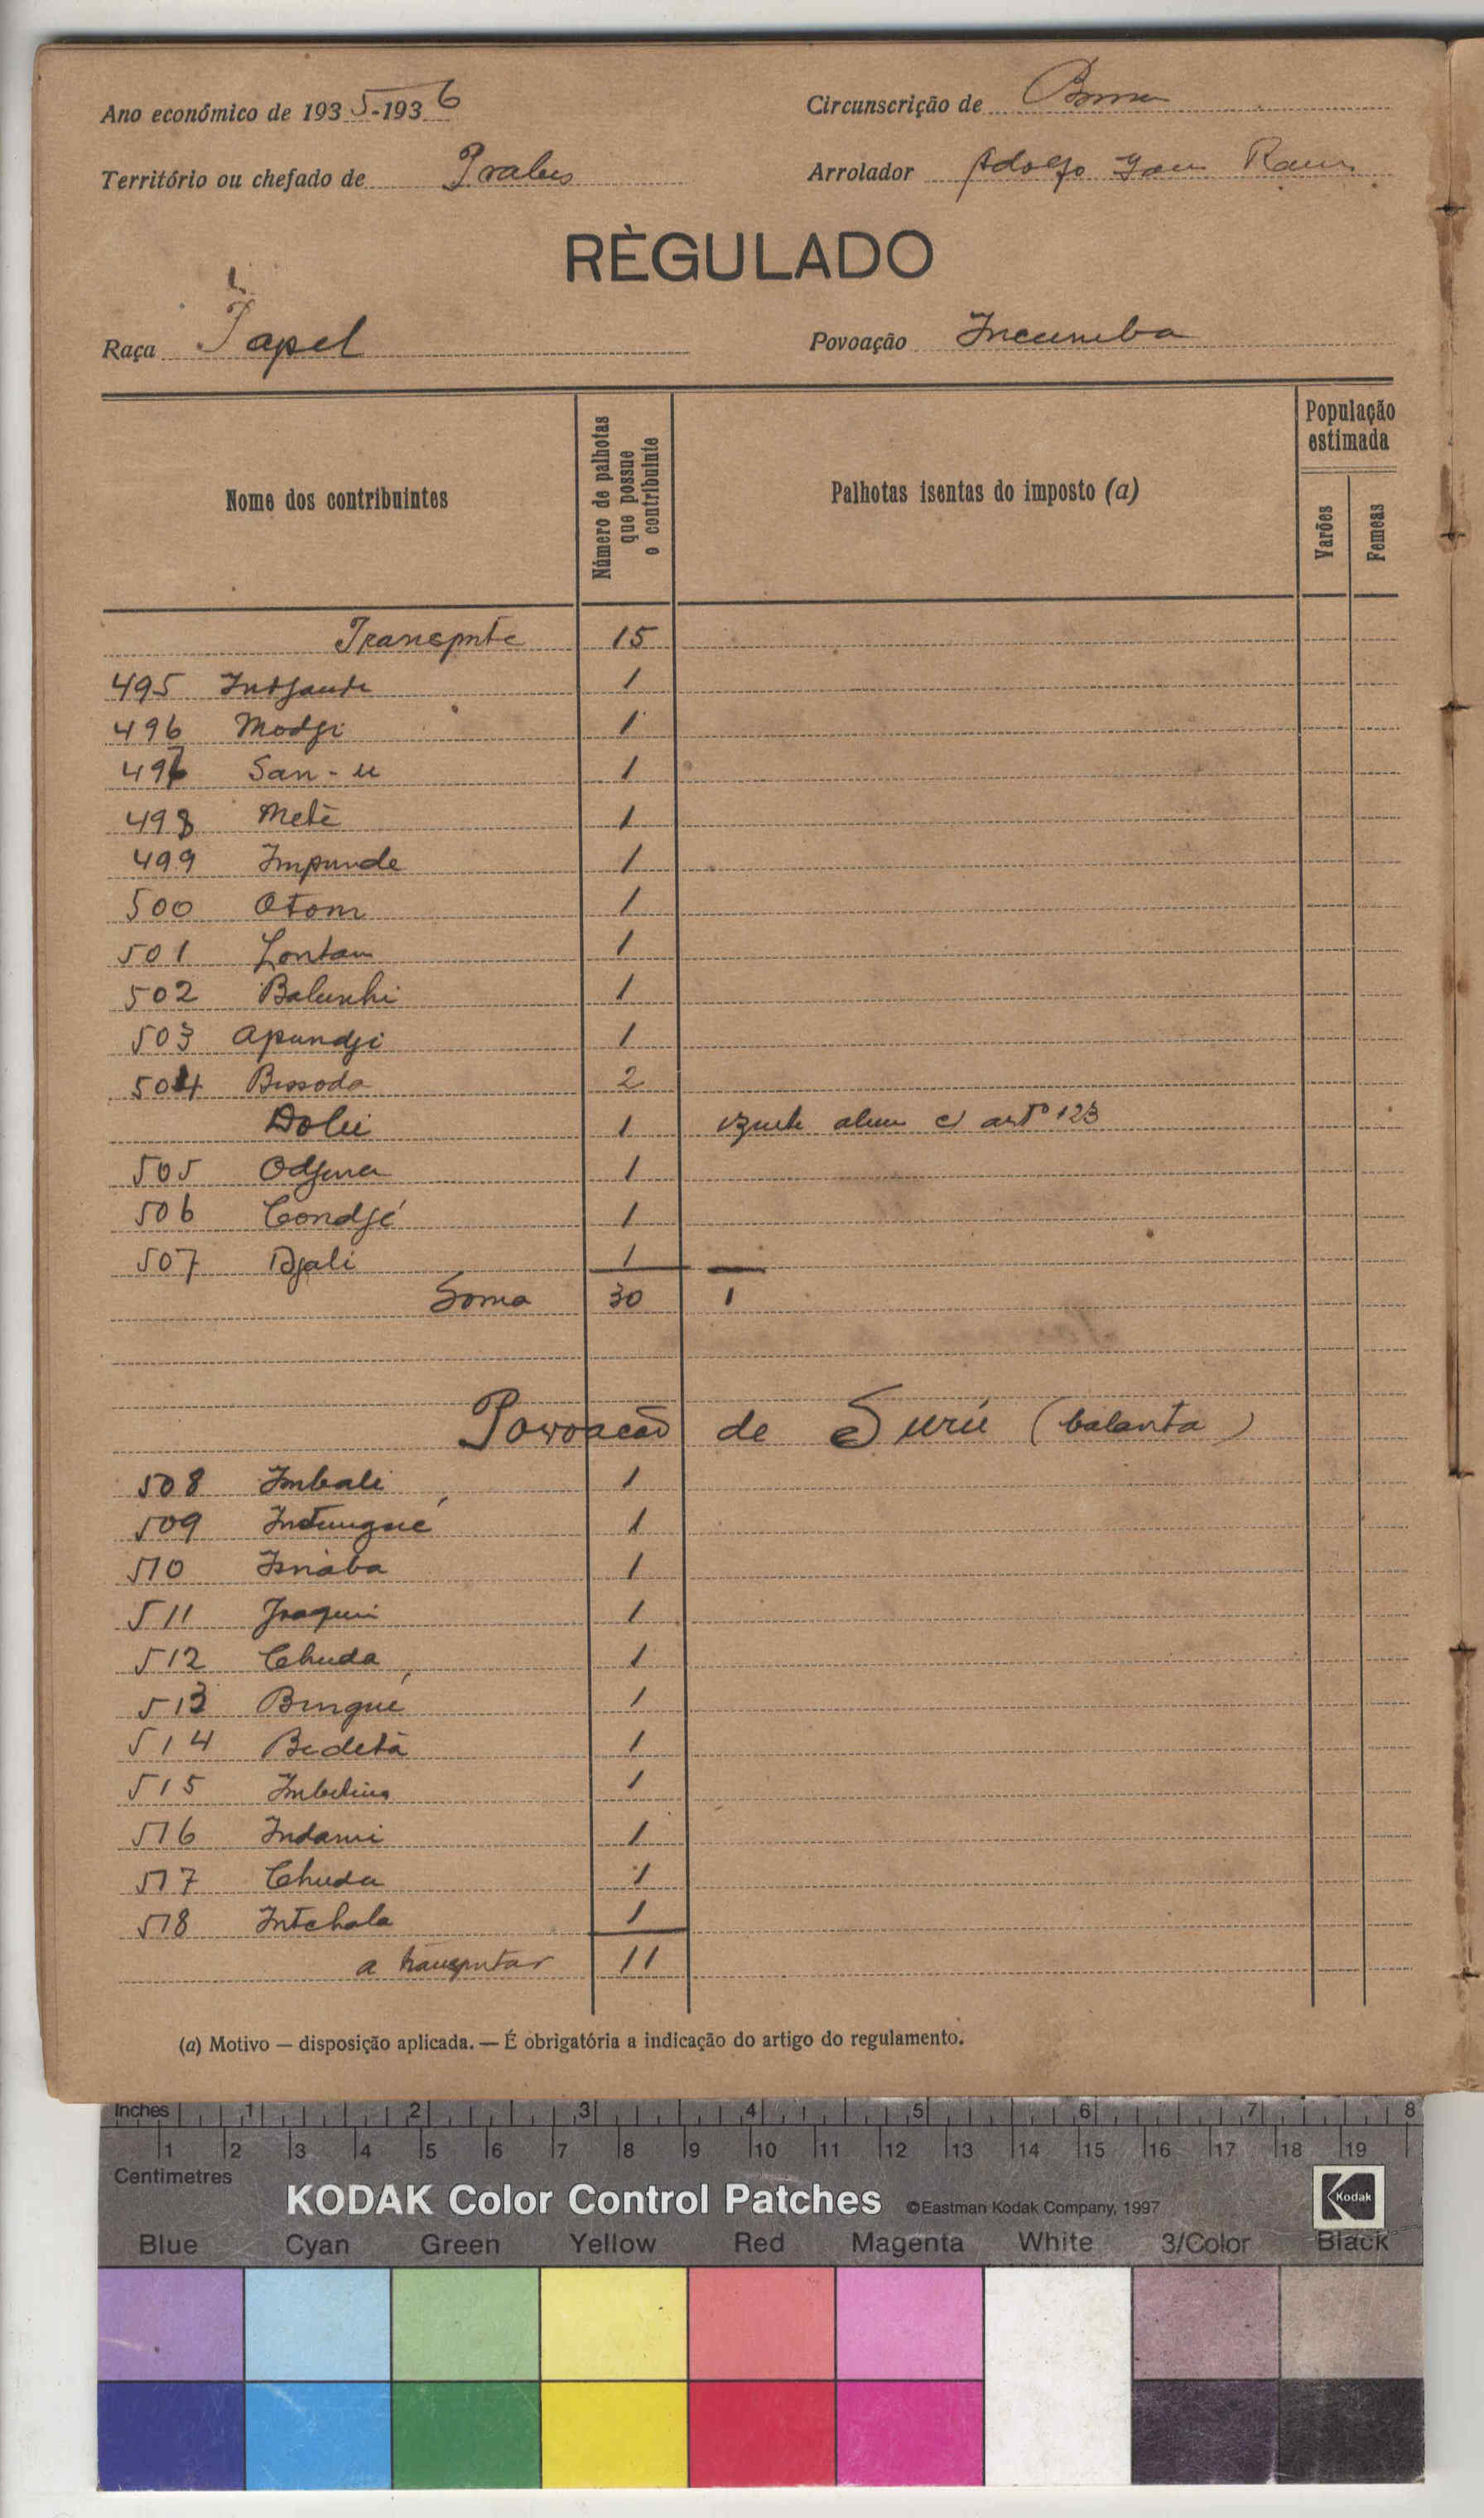 Ano económico de 1935-1936
Circunscrição de
Território ou chefado de
Arrolador Adolfo
RÈGULADO
Raça Papel
Povoação Incumba
Nome dos contribuintes
Número de palhotas que possue o contribuinte
Palhotas isentas do imposto (a)
População estimada
Varões
Femeas
Transporte 15
495 1
496 Modji 1
497 San-u 1
498 Metè 1
499 Impunde 1
500 Otom 1
501 Lontam 1
502 Balunhi 1
503 Apundji 1
504 Bissoda 2
Dolu 1 c/ artº 123
505 1
506 Condjé 1
507 Djali 1
Soma 30 1
Povoacão de Surú (balanta)
508 Imbali 1
509 Intungué 1
510 1
511 Joaquim 1
512 Chuda 1
513 Bingué 1
514 Bedetà 1
515 1
516 Indami 1
517 Chuda 1
518 Intchala 1
a transportar 11
(a) Motivo — disposição aplicada. — É obrigatória a indicação do artigo do regulamento.
Inches 1 2 3 4 5 6 7 8
1 2 3 4 5 6 7 8 9 10 11 12 13 14 15 16 17 18 19
Centimetres
KODAK Color Control Patches ©Eastman Kodak Company, 1997 Kodak
Blue Cyan Green Yellow Red Magenta White 3/Color Black